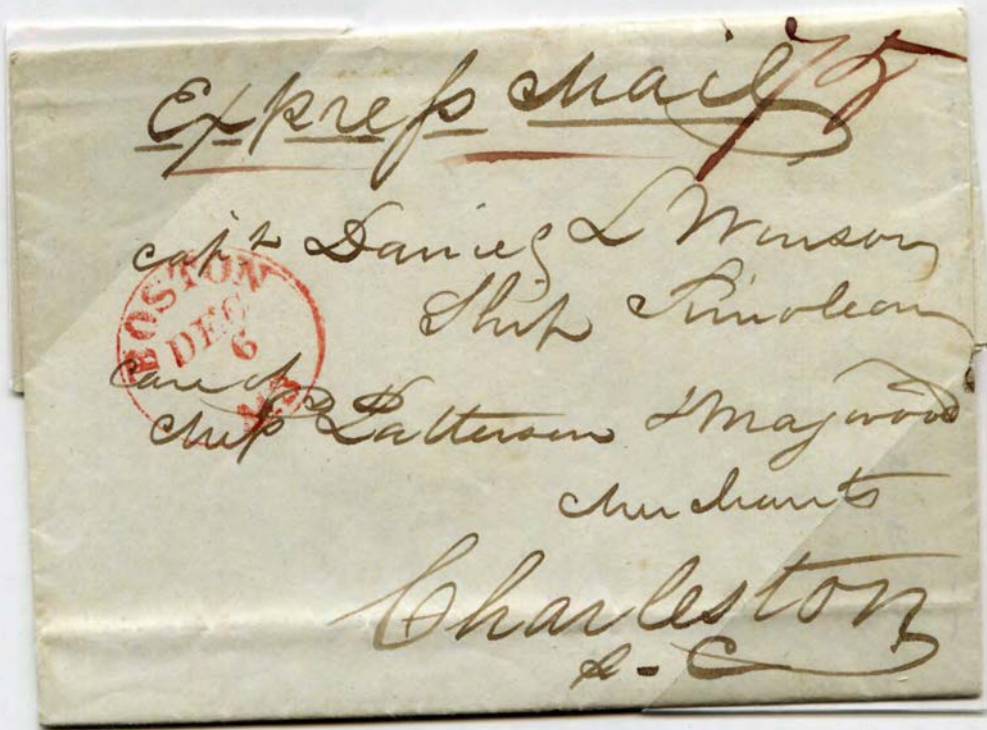 Express Mail 75
Capt Daniel L Winsor
Ship Timoleon
BOSTON
DEC
6
MS
Care of
Mess Patterson & Magwood
Merchants
Charleston
S - C